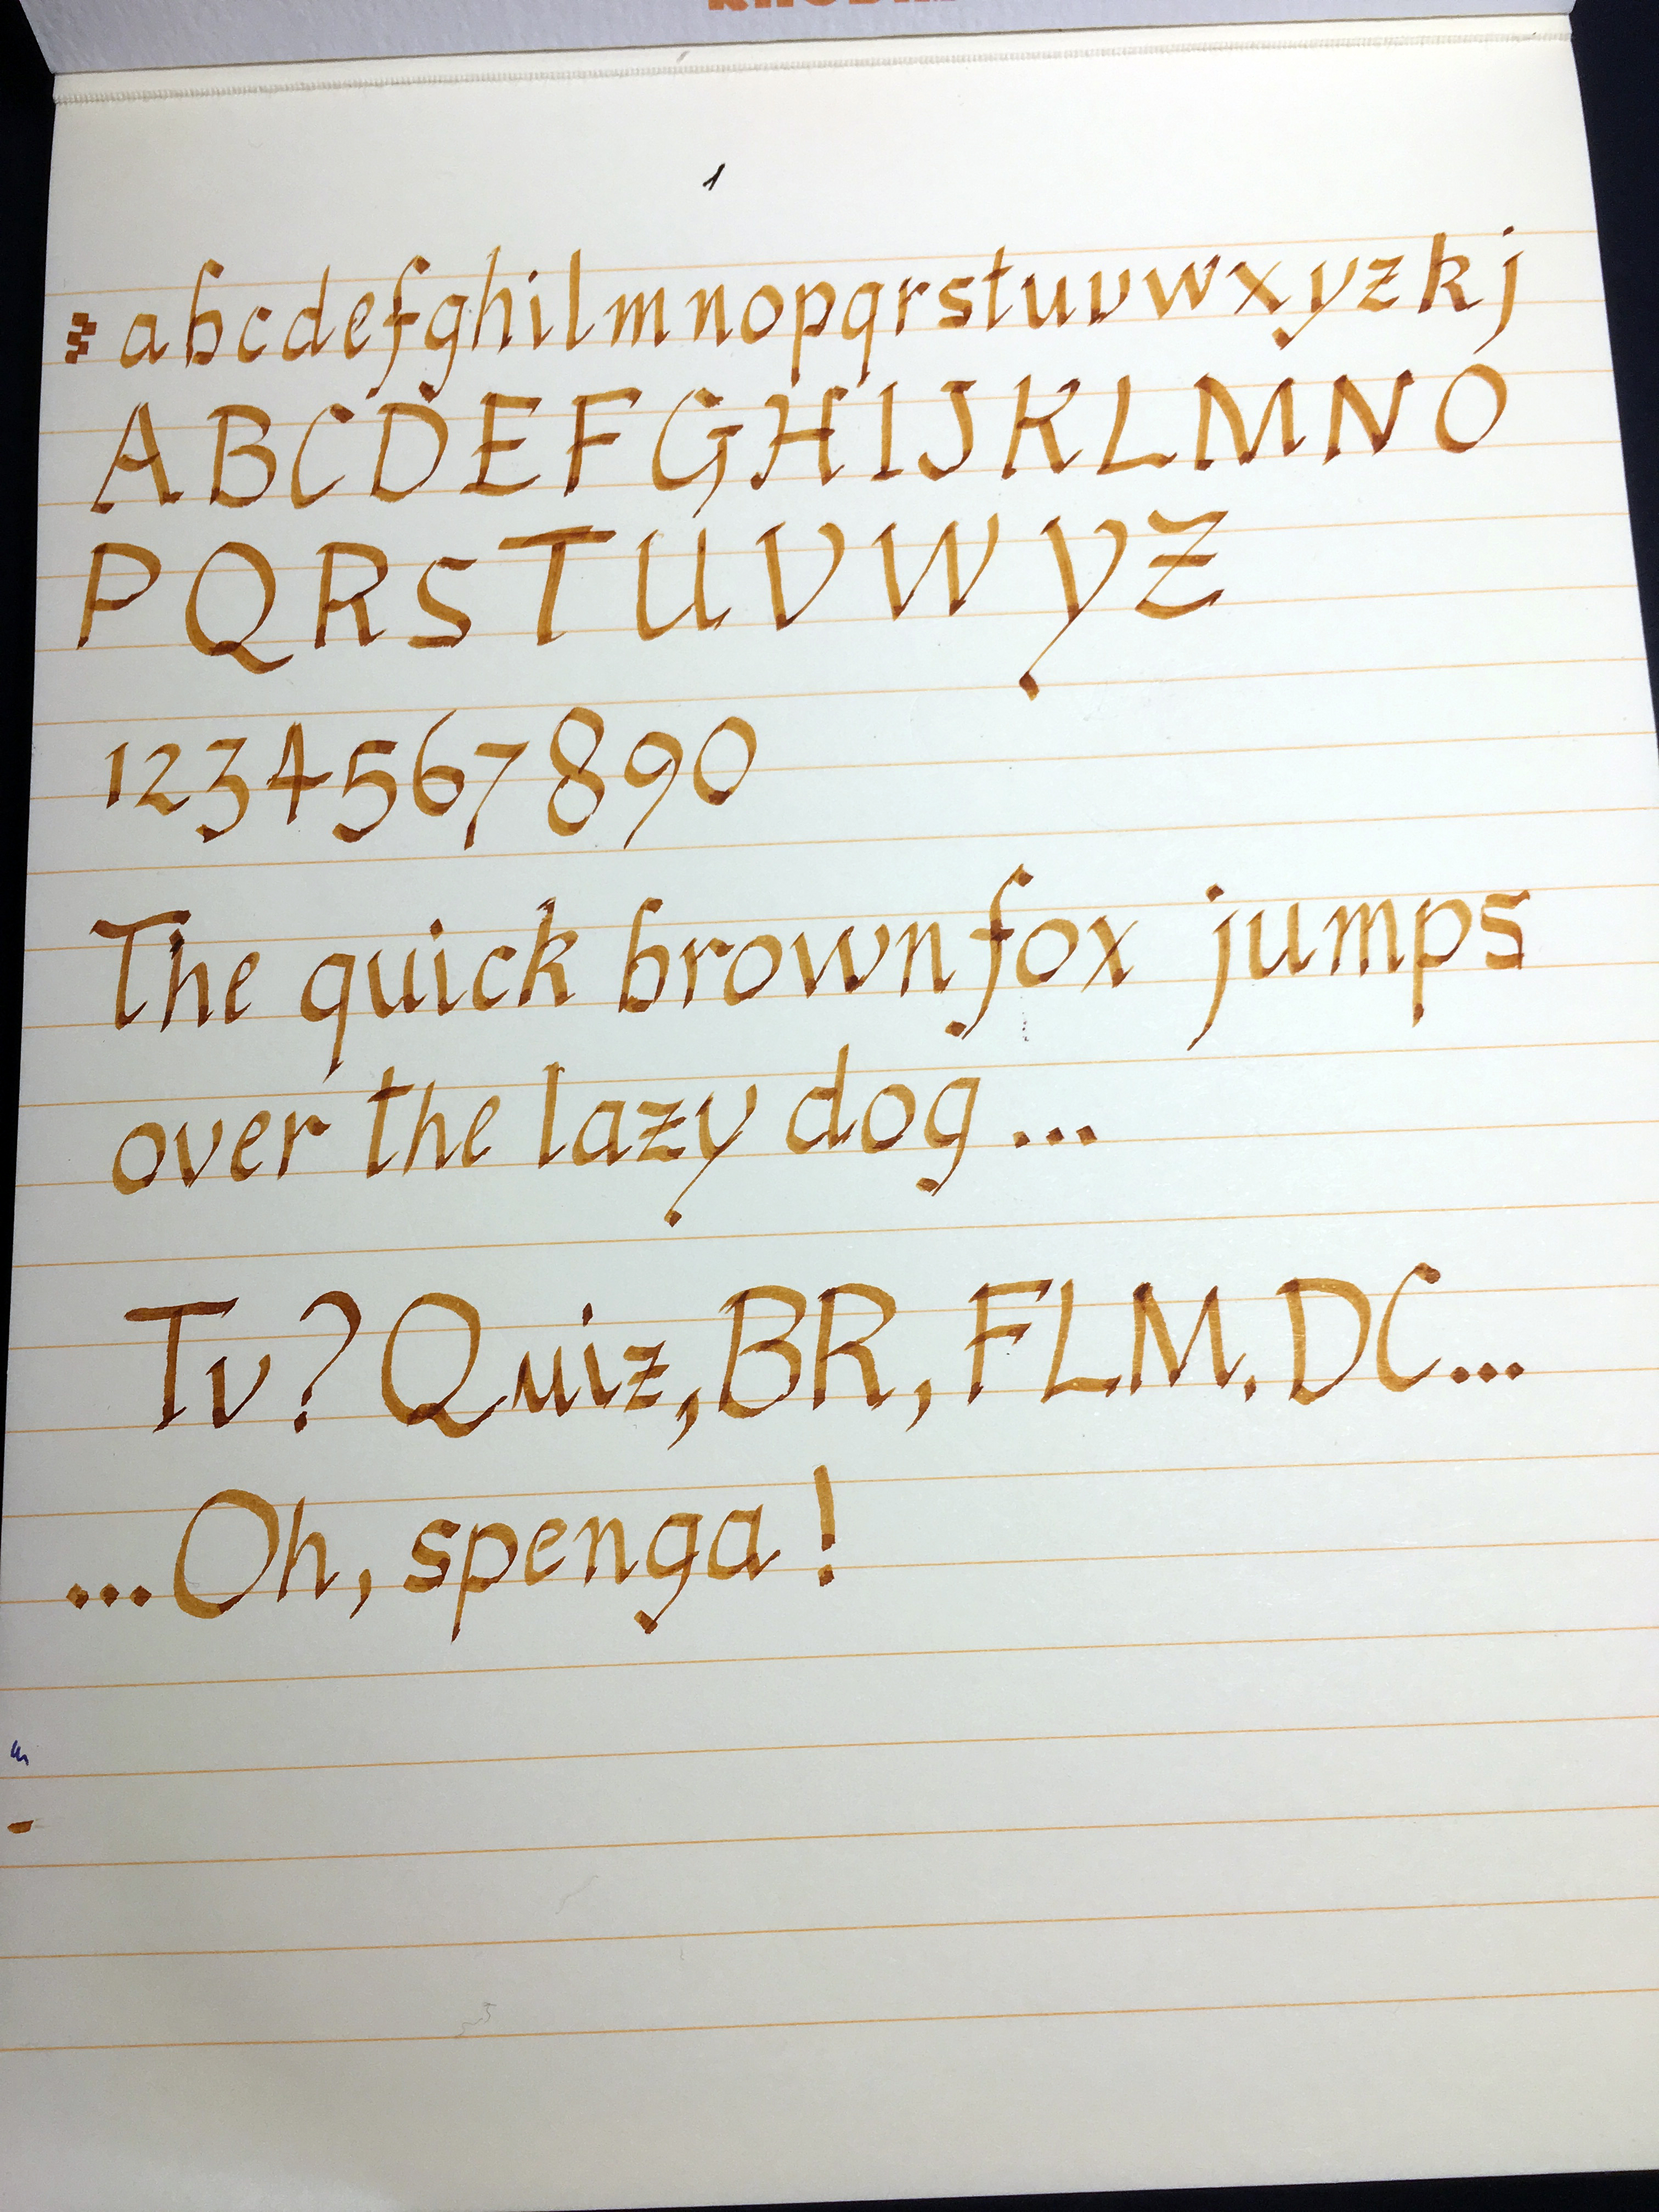 1
abcdefghilmnopqrstuvwxyzkj
ABCDEFGHIJKLMNO
PQRSTUVWYZ
1234567890
The quick brown fox jumps
over the lazy dog...
Tv? Quiz, BR, FLM. DC...
...Oh, spenga!